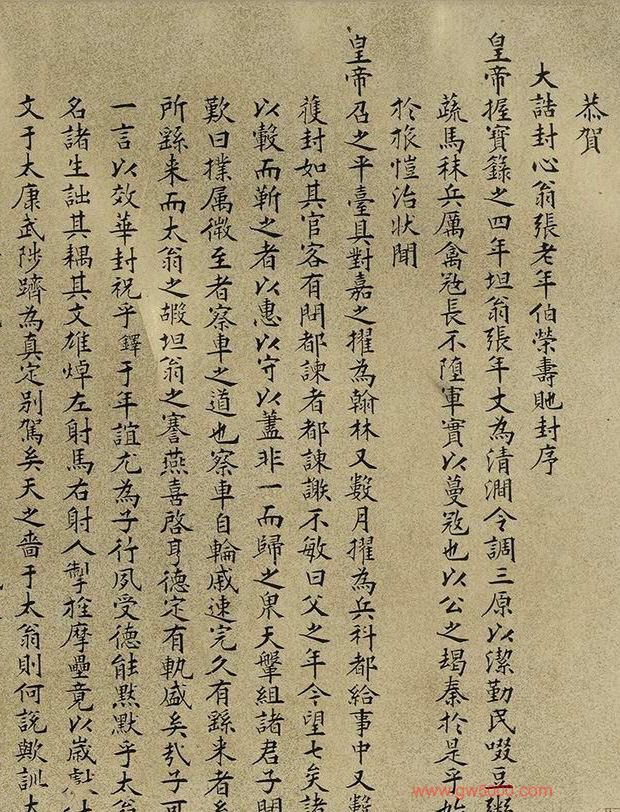 恭賀
大誥封心翁張老年伯榮壽貤封序
皇帝握寶錄之四年坦翁張年丈為清澗令調三原以潔勤民啜豆
蔬馬秣兵厲禽寇長不墮軍實以蔓寇也以公之竭秦於是乎始
於旅愷治狀聞
皇帝召之平臺具對嘉之擢為翰林又數月擢為兵科都給事中又
獲封如其官客有問都諫者都諫謝不敏曰父之年今望七矣諸
以轂而靳之者以惠以守以藎非一而歸之泉天鞶組諸君子聞
歎曰樸属微至者察車之道也察車自輪戚速完久有繇来者
所繇来而太翁之嘏坦翁之謇燕喜啓亨德定有軌盛矣㢤子可
一言以效華封祝乎鐸于年誼尤為子行夙受德能黙黙乎太翁
名諸生詘其耦其文雄焯左射馬右射人掣拴摩壘竟以歲
文于太康武陟躋為真定别駕矣天之嗇于太翁則何說歟訓大
www.gw8000.com